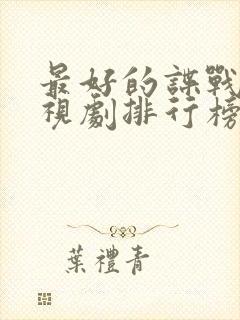 最好的諜戰
視劇排行榜
葉禮青